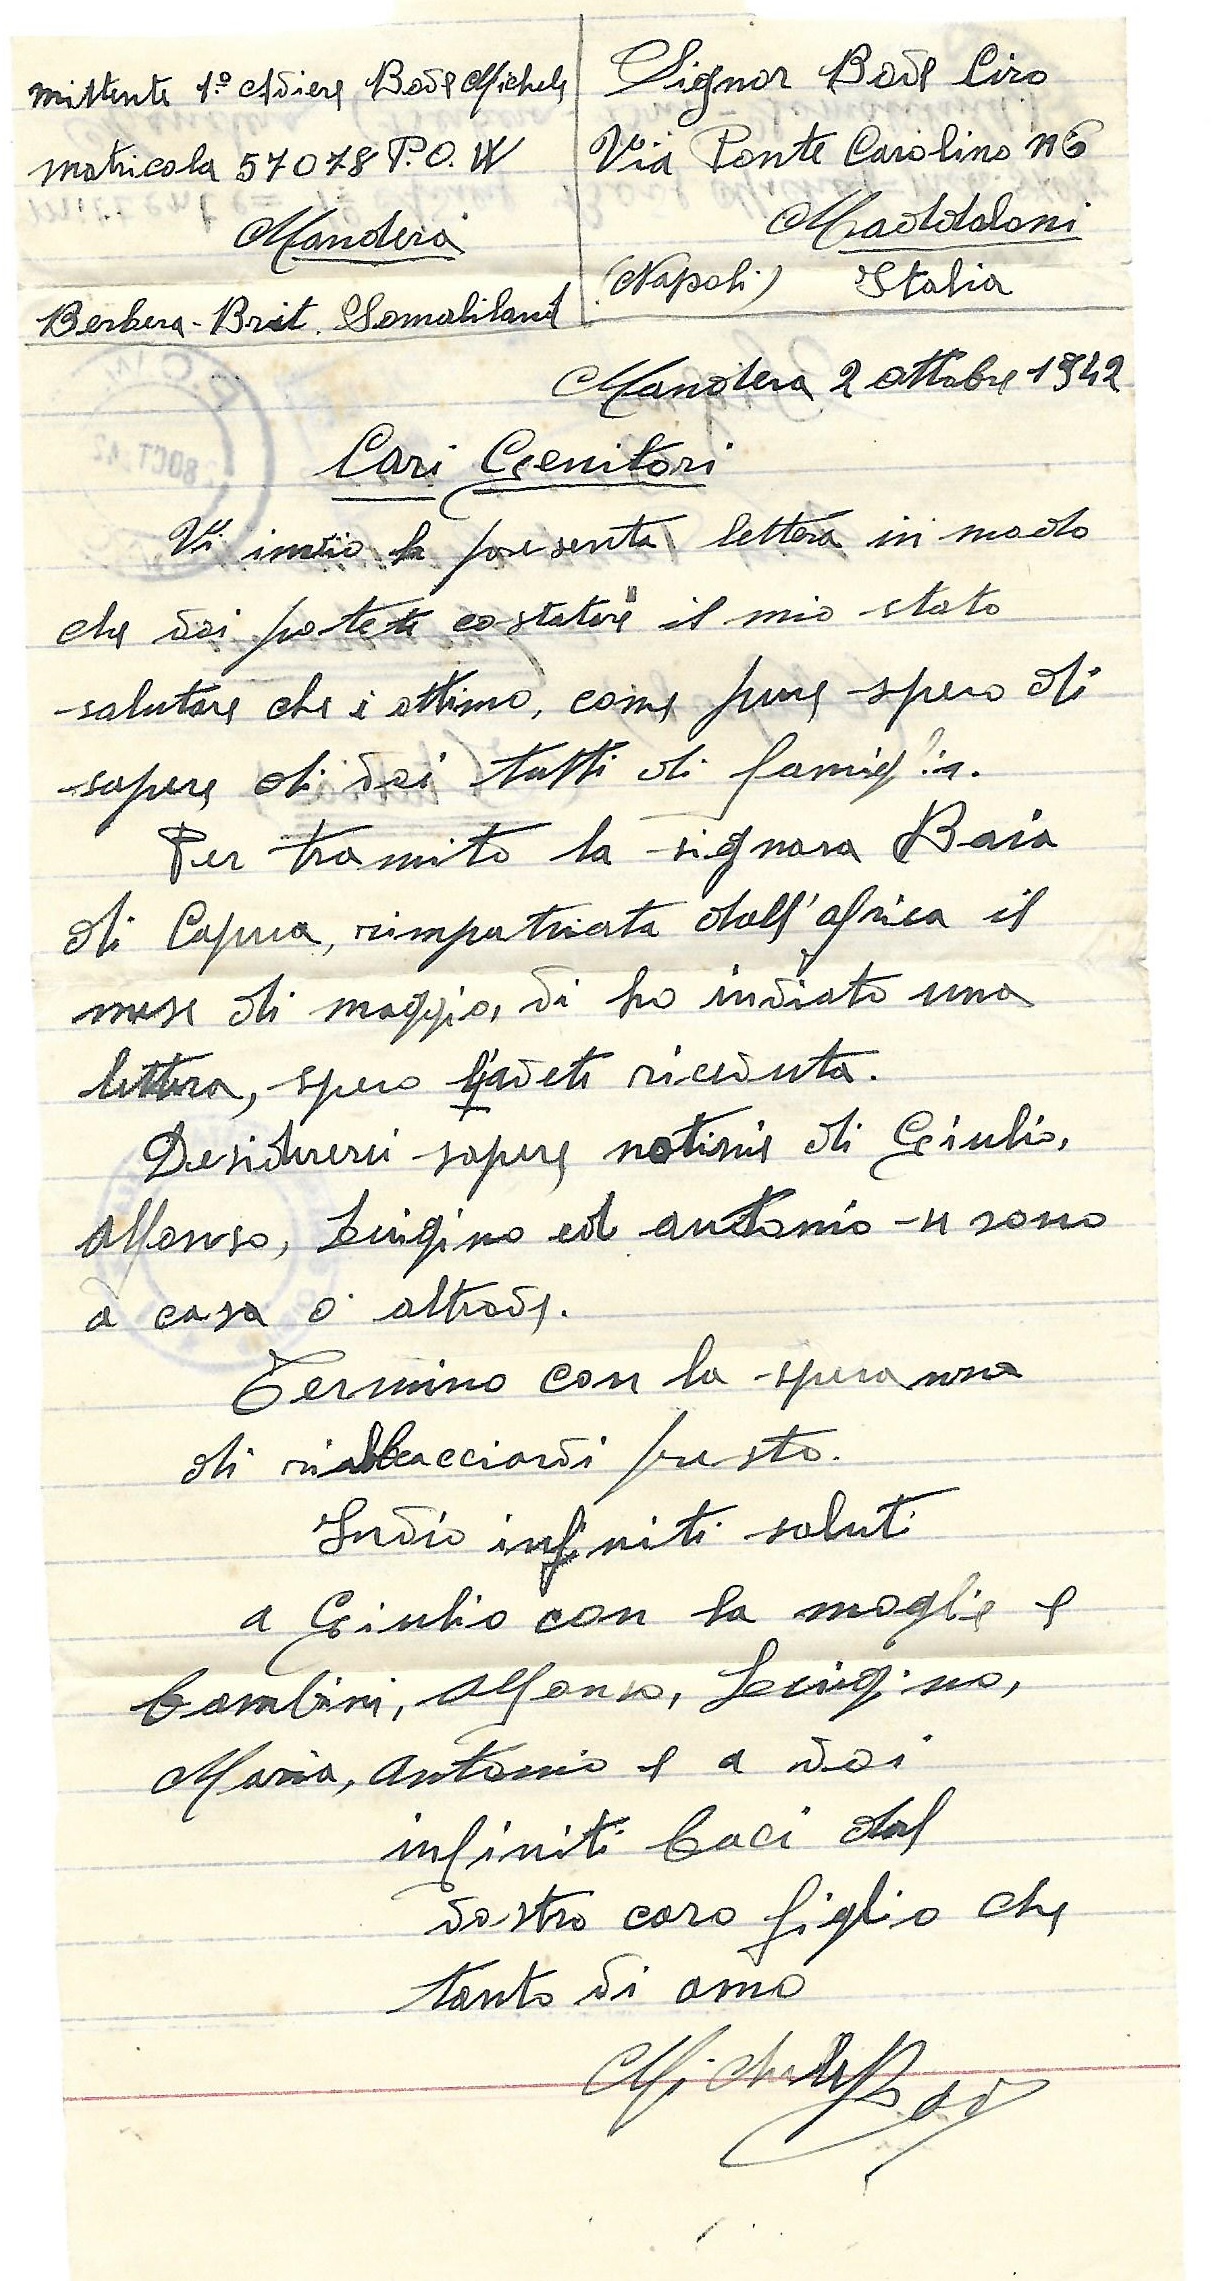 Mittente 1º Aviere Bove Michele
Matricola 57078 P.O.W
Mandera
Berbera - Brit. Somaliland
Signor Bove Ciro
Via Ponte Carolino N 6
Maddaloni
(Napoli) Italia
Mandera 2 ottobre 1942
Cari Genitori
Vi invio la presente lettera in modo
che voi potete costatare il mio stato
salutare che è ottimo, come pure spero di
sapere di voi tutti di famiglia.
Per tramite la signora Baia
di Capua, rimpatriata dall'africa il
mese di maggio, vi ho inviato una
lettera, spero l'avete ricevuta.
Desidererei sapere notizie di Giulio,
Alfonso, Luigino ed Antonio se sono
a casa o altrove.
Termino con la speranza
di riabbracciarvi presto.
Invio infiniti saluti
a Giulio con la moglie e
bambini, Alfonso, Luigino,
Maria, Antonio e a voi
infiniti baci dal
vostro caro figlio che
tanto vi ama
Michele Bove
8 OCT 42